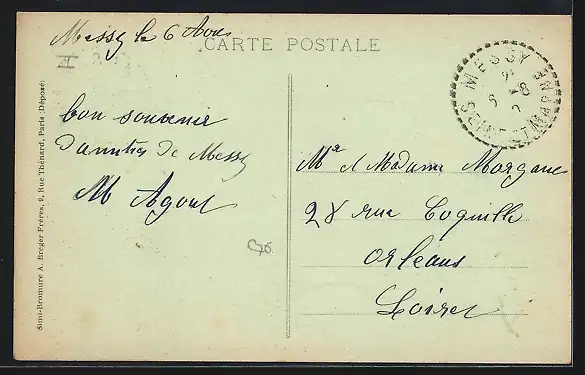 Messy le 6 Aout
CARTE POSTALE
II
MESSY
6 -8
SEINE ET MARNE
bon souvenir
d'amitiés de Messy
M Agout
Mr et Madame Morgane
28 rue Coquille
Orléans
Loiret
C76
Simi-Bromure A. Breger Frères, 9, Rue Thénard, Paris (Déposé)